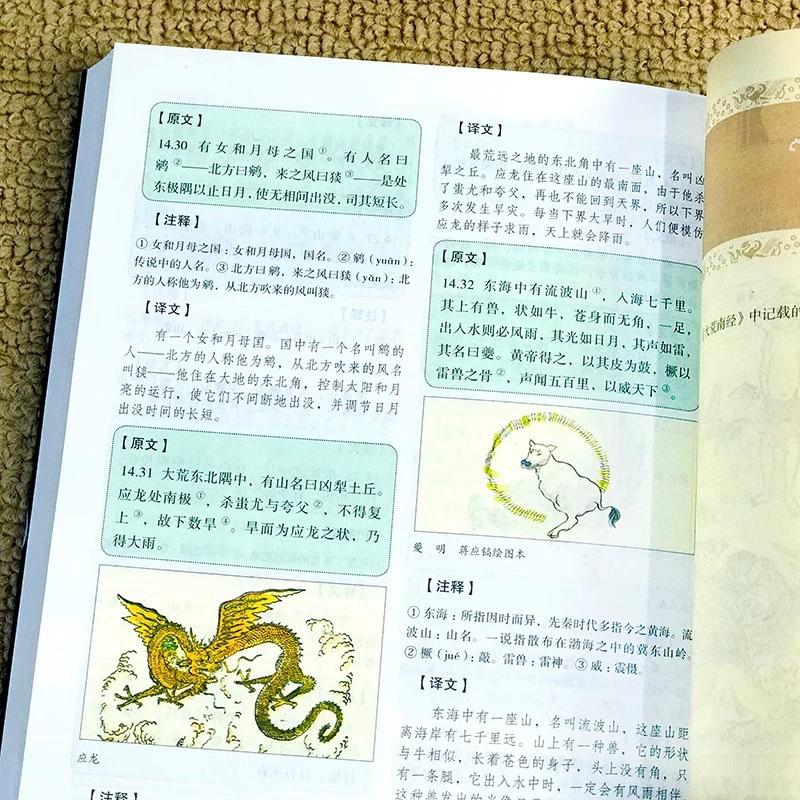 【原文】
14.30 有女和月母之国①。有人名曰
鹓②——北方曰鹓，来之风曰狻③——是处
东极隅以止日月，使无相间出没，司其短长。
【注释】
①女和月母之国：女和月母国，国名。②鹓（yuān）：
传说中的人名。③北方曰鹓，来之风曰狻（yǎn）：北
方的人称他为鹓，从北方吹来的风叫狻。
【译文】
有一个女和月母国。国中有一个名叫鹓的
人——北方的人称他为鹓，从北方吹来的风名
叫狻——他住在大地的东北角，控制太阳和月
亮的运行，使它们不间断地出没，并调节日月
出没时间的长短。
【原文】
14.31 大荒东北隅中，有山名曰凶犁土丘。
应龙处南极①，杀蚩尤与夸父②，不得复
上③，故下数旱④。旱而为应龙之状，乃
得大雨。
应龙
【注释】
【译文】
最荒远之地的东北角中有一座山，名叫凶
犁之丘。应龙住在这座山的最南面，由于他杀
了蚩尤和夸父，再也不能回到天界，所以下界
多次发生旱灾。每当下界大旱时，人们便模仿
应龙的样子求雨，天上就会降雨。
【原文】
14.32 东海中有流波山①，入海七千里。
其上有兽，状如牛，苍身而无角，一足，
出入水则必风雨，其光如日月，其声如雷，
其名曰夔。黄帝得之，以其皮为鼓，橛以
雷兽之骨②，声闻五百里，以威天下③。
夔 明 蒋应镐绘图本
【注释】
①东海：所指因时而异，先秦时代多指今之黄海。流
波山：山名。一说指散布在渤海之中的冀东山岭。
②橛（jué）：敲。雷兽：雷神。③威：震慑。
【译文】
东海中有一座山，名叫流波山，这座山距
离海岸有七千里远。山上有一种兽，它的形状
与牛相似，长着苍色的身子，头上没有角，只
有一条腿，它出入水中时，一定会有风雨相伴，
这种兽发出的光像日月
《大荒南经》中记载的